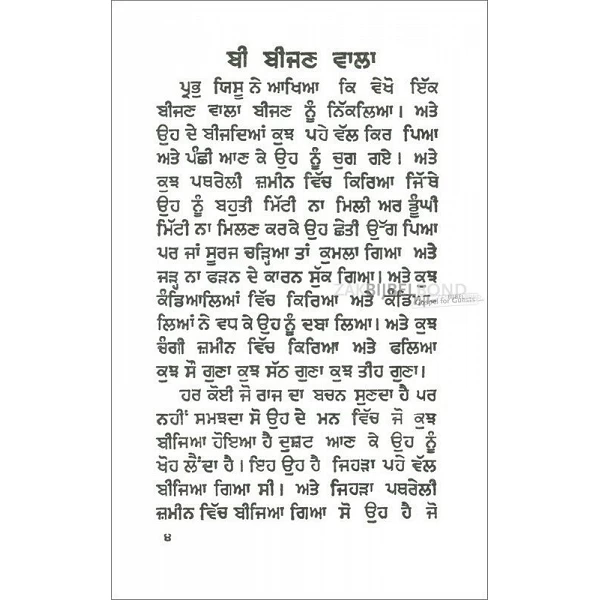 ਬੀ ਬੀਜਣ ਵਾਲਾ
ਪ੍ਰਭੁ ਯਿਸੂ ਨੇ ਆਖਿਆ ਕਿ ਵੇਖੋ ਇੱਕ
ਬੀਜਣ ਵਾਲਾ ਬੀਜਣ ਨੂੰ ਨਿੱਕਲਿਆ। ਅਤੇ
ਉਹ ਦੇ ਬੀਜਦਿਆਂ ਕੁਝ ਪਹੇ ਵੱਲ ਕਿਰ ਪਿਆ
ਅਤੇ ਪੰਛੀ ਆਣ ਕੇ ਉਹ ਨੂੰ ਚੁਗ ਗਏ। ਅਤੇ
ਕੁਝ ਪਥਰੇਲੀ ਜ਼ਮੀਨ ਵਿੱਚ ਕਿਰਿਆ ਜਿੱਥੇ
ਉਹ ਨੂੰ ਬਹੁਤੀ ਮਿੱਟੀ ਨਾ ਮਿਲੀ ਅਰ ਡੂੰਘੀ
ਮਿੱਟੀ ਨਾ ਮਿਲਣ ਕਰਕੇ ਉਹ ਛੇਤੀ ਉੱਗ ਪਿਆ
ਪਰ ਜਾਂ ਸੂਰਜ ਚੜ੍ਹਿਆ ਤਾਂ ਕੁਮਲਾ ਗਿਆ ਅਤੇ
ਜੜ੍ਹ ਨਾ ਫੜਨ ਦੇ ਕਾਰਨ ਸੁੱਕ ਗਿਆ। ਅਤੇ ਕੁਝ
ਕੰਡਿਆਲਿਆਂ ਵਿੱਚ ਕਿਰਿਆ ਅਤੇ ਕੰਡਿਆ-
ਲਿਆਂ ਨੇ ਵਧ ਕੇ ਉਹ ਨੂੰ ਦਬਾ ਲਿਆ। ਅਤੇ ਕੁਝ
ਚੰਗੀ ਜ਼ਮੀਨ ਵਿੱਚ ਕਿਰਿਆ ਅਤੇ ਫਲਿਆ
ਕੁਝ ਸੌ ਗੁਣਾ ਕੁਝ ਸੱਠ ਗੁਣਾ ਕੁਝ ਤੀਹ ਗੁਣਾ।
ਹਰ ਕੋਈ ਜੋ ਰਾਜ ਦਾ ਬਚਨ ਸੁਣਦਾ ਹੈ ਪਰ
ਨਹੀਂ ਸਮਝਦਾ ਸੋ ਉਹ ਦੇ ਮਨ ਵਿੱਚ ਜੋ ਕੁਝ
ਬੀਜਿਆ ਹੋਇਆ ਹੈ ਦੁਸ਼ਟ ਆਣ ਕੇ ਉਹ ਨੂੰ
ਖੋਹ ਲੈਂਦਾ ਹੈ। ਇਹ ਉਹ ਹੈ ਜਿਹੜਾ ਪਹੇ ਵੱਲ
ਬੀਜਿਆ ਗਿਆ ਸੀ। ਅਤੇ ਜਿਹੜਾ ਪਥਰੇਲੀ
ਜ਼ਮੀਨ ਵਿੱਚ ਬੀਜਿਆ ਗਿਆ ਸੋ ਉਹ ਹੈ ਜੋ
੪
ZAKBIJBELBOND
Gospel for Guests